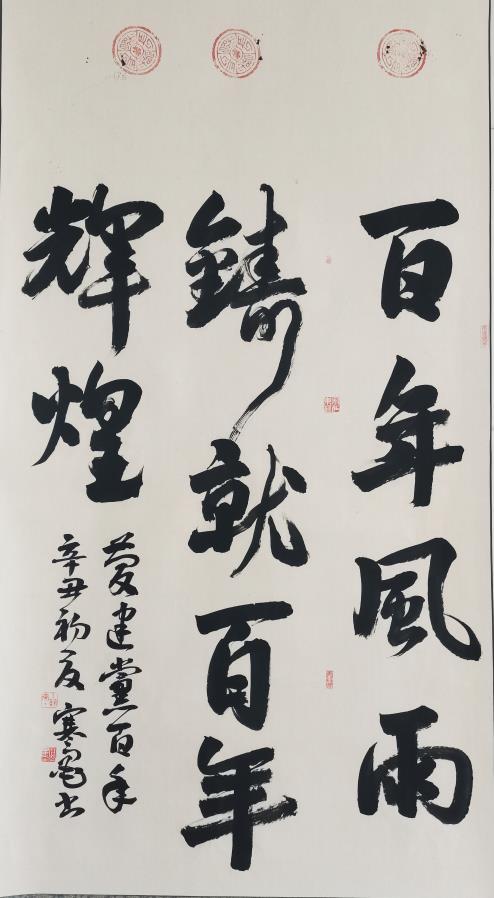 百年風雨
鑄就百年
輝煌
慶建黨百年
辛丑初夏寒書